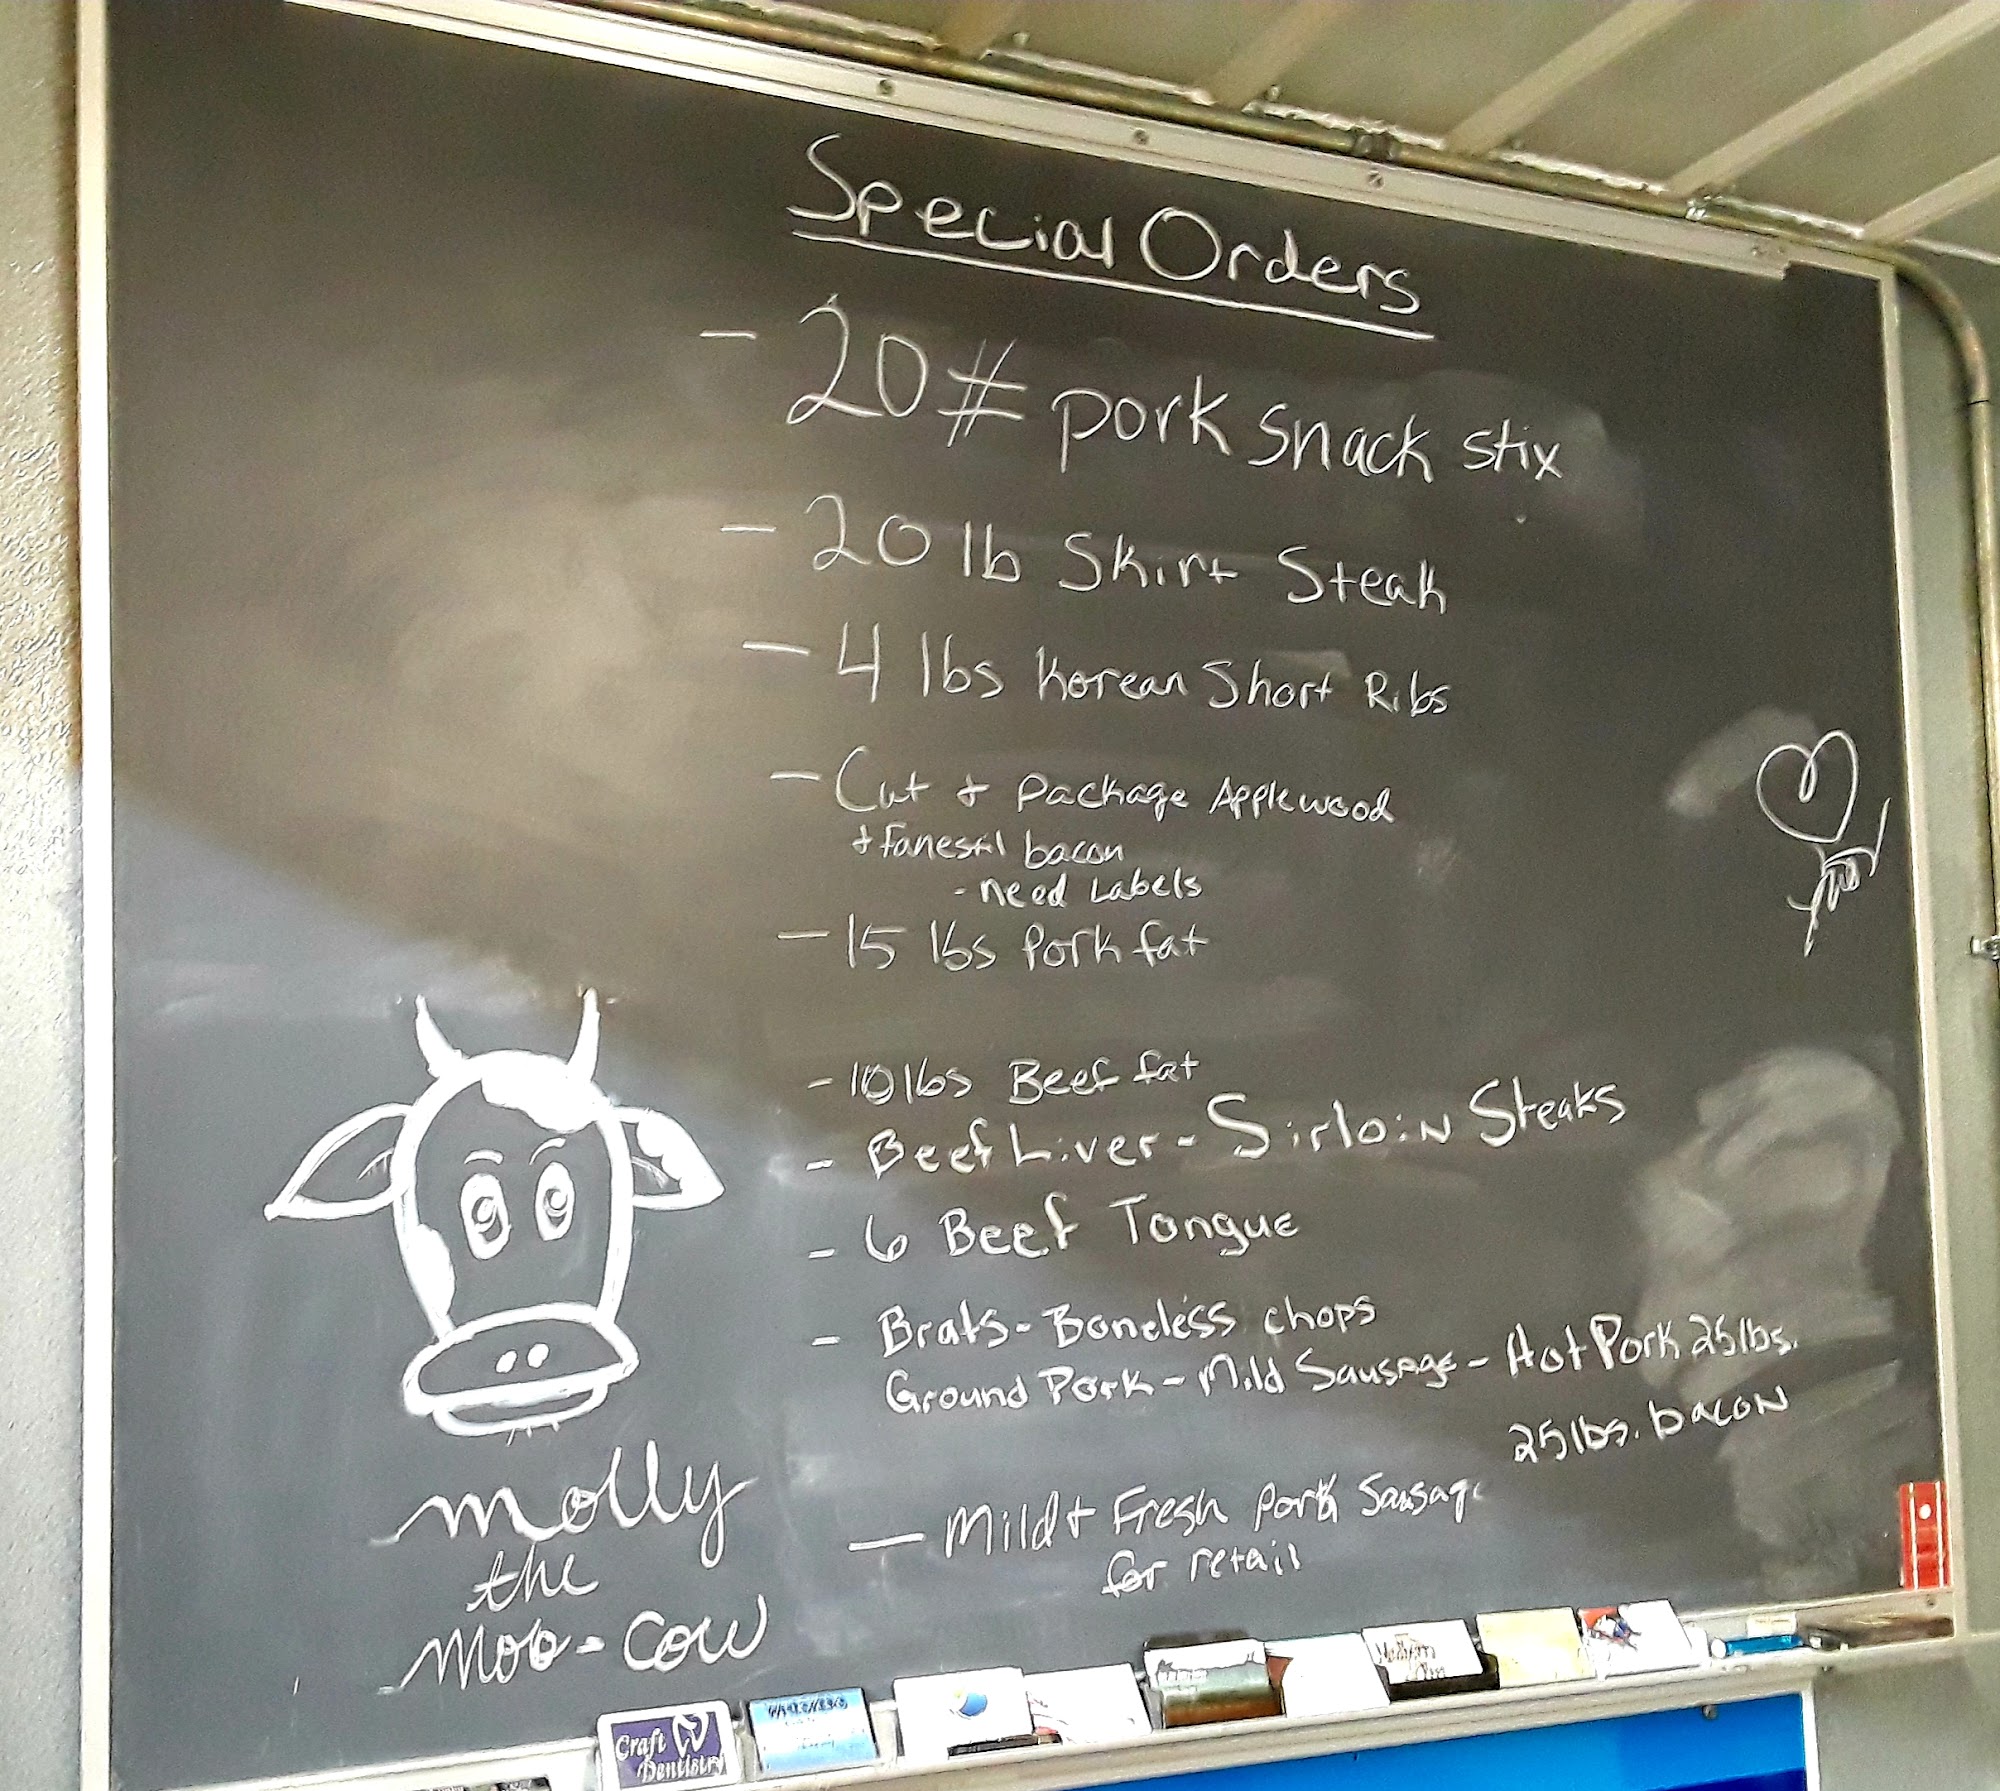 Special Orders
- 20# pork snack stix
- 20 lb Skirt Steak
- 4 lbs Korean Short Ribs
- Cut + Package Applewood
+ Fanestil bacon
- need Labels
- 15 lbs Pork fat
- 10 lbs Beef fat
- Beef Liver - Sirloin Steaks
- 6 Beef Tongue
- Brats - Boneless chops
Ground Pork - Mild Sausage - Hot Pork 25 lbs.
25 lbs. bacon
- Mild + Fresh Pork Sausage
for retail
molly
the
Moo-Cow
Craft
Dentistry